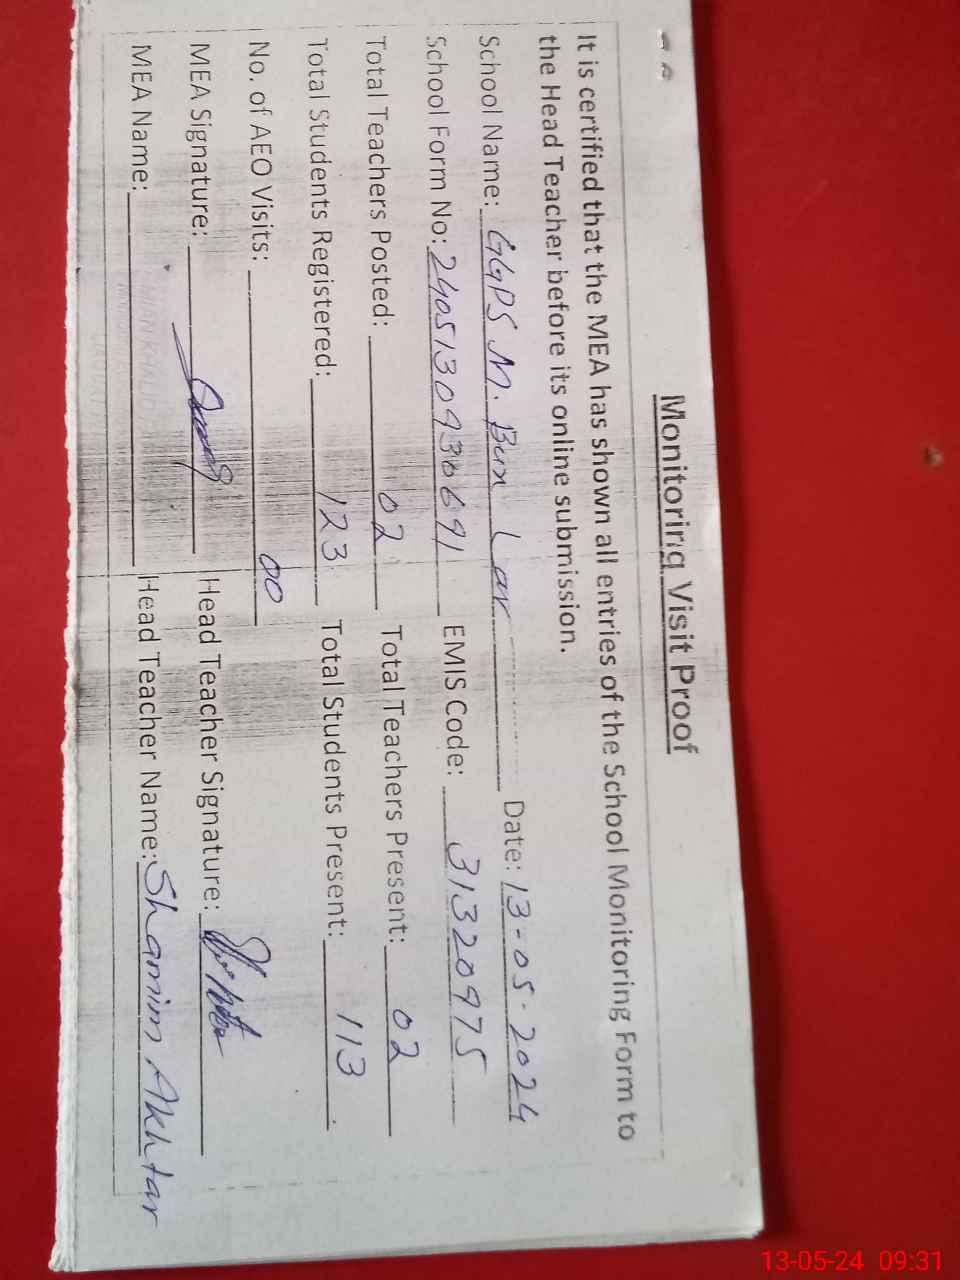 Monitoring Visit Proof
It is certified that the MEA has shown all entries of the School Monitoring Form to
the Head Teacher before its online submission.
School Name: GGPS M. Bun Lar Date: 13-05-2024
School Form No: EMIS Code: 31320975
Total Teachers Posted: 02 Total Teachers Present: 02
Total Students Registered: 123 Total Students Present: 113
No. of AEO Visits: 00
MEA Signature: Head Teacher Signature:
MEA Name: Head Teacher Name: Shamim Akhtar
MIAN KHALID
13-05-24 09:31